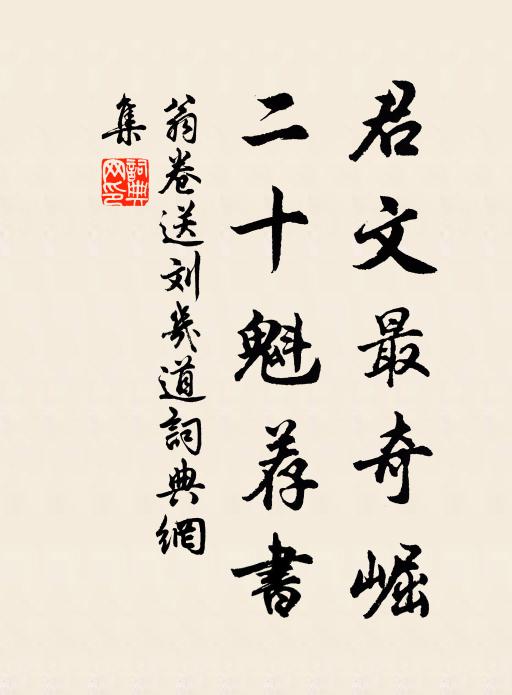 君文最奇崛
二十魁荐書
翁卷送刘幾道詞典網
集
詞典网印